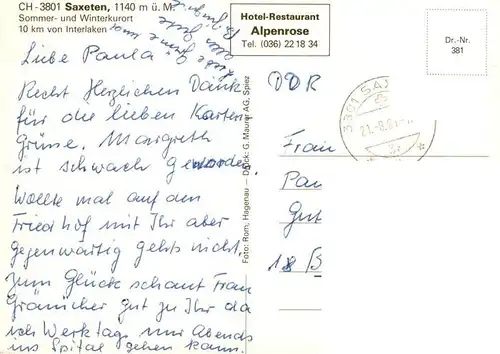 CH - 3801 Saxeten, 1140 m ü. M.
Sommer- und Winterkurort
10 km von Interlaken
Hotel-Restaurant
Alpenrose
Tel. (036) 22 18 34
Dr.-Nr.
381
Liebe Paula
Recht Herzlichen Dank
für die lieben Karten
Grüsse. Margreth
ist schwach geworden.
Wollte mal auf den
Friedhof mit Ihr aber
gegenwärtig gehts nicht.
Zum Glück schaut Frau
gut zu Ihr da
ich Werktags nur Abends
ins Spital gehen kann.
Foto: Rom, Hagenau — Druck: G. Maurer AG, Spiez
DDR
3801 SAX
21.-8.81
Frau
Pau
Gut